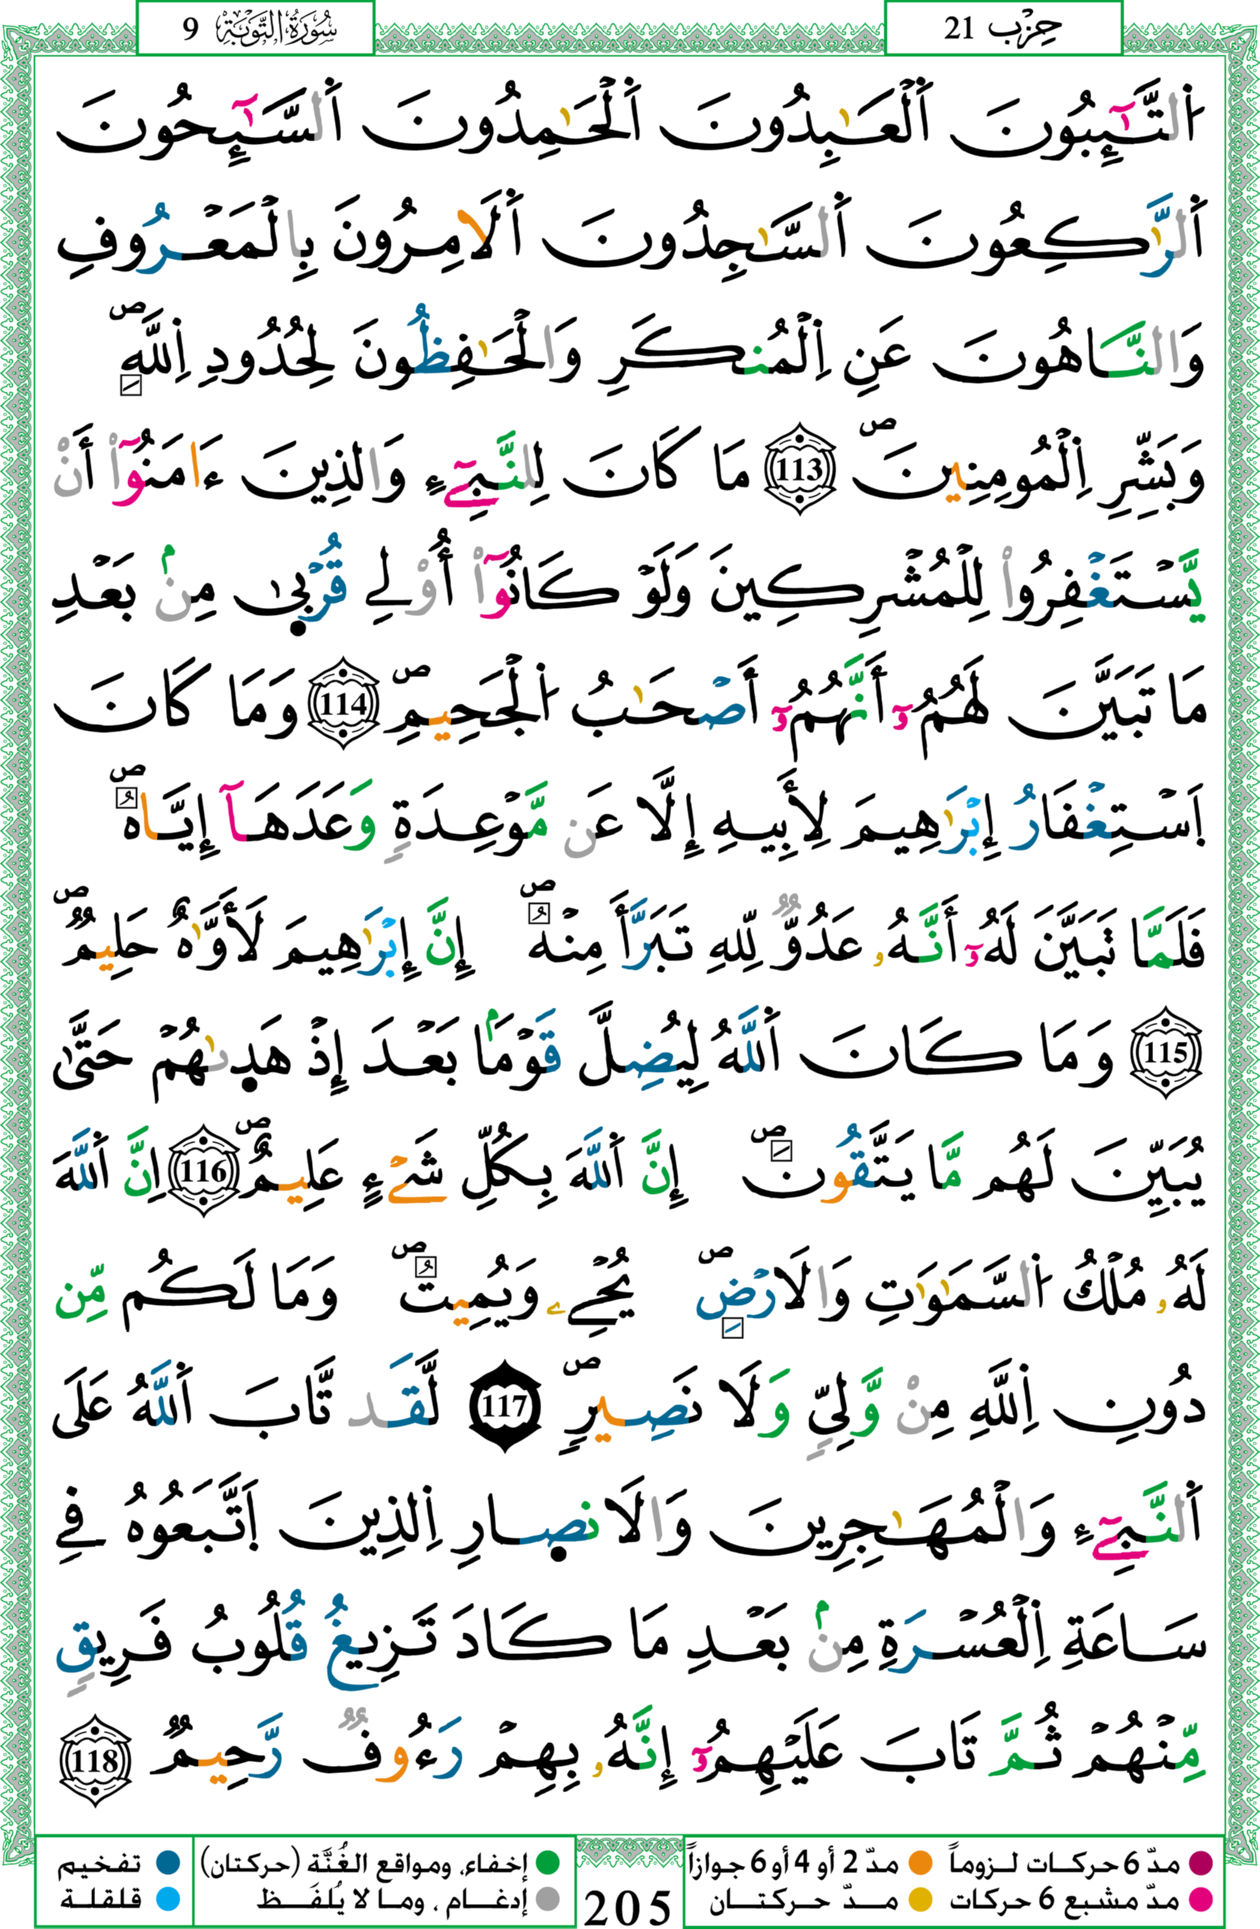 حِزْب 21
سُورَةُ التَّوْبَة 9
اَ۬لتَّٰٓئِبُونَ اَ۬لْعَٰبِدُونَ اَ۬لْحَٰمِدُونَ اَ۬لسَّٰٓئِحُونَ
اَ۬لرَّٰكِعُونَ اَ۬لسَّٰجِدُونَ اَ۬لَامِرُونَ بِالْمَعْرُوفِ
وَالنَّاهُونَ عَنِ اِ۬لْمُنكَرِ وَالْحَٰفِظُونَ لِحُدُودِ اِ۬للَّهِۖ
وَبَشِّرِ اِ۬لْمُومِنِينَۖ 113 مَا كَانَ لِلنَّبِےٓءِ وَالذِينَ ءَامَنُوٓاْ أَنْ
يَّسْتَغْفِرُواْ لِلْمُشْرِكِينَ وَلَوْ كَانُوٓاْ أُوْلِے قُرْب۪يٰ مِنۢ بَعْدِ
مَا تَبَيَّنَ لَهُمُۥٓ أَنَّهُمُۥٓ أَصْحَٰبُ اُ۬لْجَحِيمِۖ 114 وَمَا كَانَ
اَ۪سْتِغْفَارُ إِبْرَٰهِيمَ لِأَبِيهِ إِلَّا عَن مَّوْعِدَةٖ وَعَدَهَآ إِيَّاهُۖ
فَلَمَّا تَبَيَّنَ لَهُۥٓ أَنَّهُۥ عَدُوّٞ لِلهِ تَبَرَّأَ مِنْهُۖ إِنَّ إِبْرَٰهِيمَ لَأَوَّٰهٌ حَلِيمٞۖ
115 وَمَا كَانَ اَ۬للَّهُ لِيُضِلَّ قَوْماَۢ بَعْدَ إِذْ هَد۪يٰهُمْ حَتَّيٰ
يُبَيِّنَ لَهُم مَّا يَتَّقُونَۖ إِنَّ اَ۬للَّهَ بِكُلِّ شَےْءٍ عَلِيمٌۖ 116 اِنَّ اَ۬للَّهَ
لَهُۥ مُلْكُ اُ۬لسَّمَٰوَٰتِ وَالَارْضِۖ يُحْيِۦ وَيُمِيتُۖ وَمَا لَكُم مِّن
دُونِ اِ۬للَّهِ مِنْ وَّلِيّٖ وَلَا نَصِيرٖۖ 117 لَّقَد تَّابَ اَ۬للَّهُ عَلَي
اَ۬لنَّبِےٓءِ وَالْمُهَٰجِرِينَ وَالَانص۪ارِ اِ۬لذِينَ اَ۪تَّبَعُوهُ فِے
سَاعَةِ اِ۬لْعُسْرَةِ مِنۢ بَعْدِ مَا كَادَ تَزِيغُ قُلُوبُ فَرِيقٖ
مِّنْهُمْ ثُمَّ تَابَ عَلَيْهِمُۥٓ إِنَّهُۥ بِهِمْ رَءُوفٞ رَّحِيمٞ 118
مدّ 6 حركات لـزوماً مدّ 2 أو 4 أو 6 جوازاً إخفاء، ومواقع الغُنَّة (حركتان) تفخيم
مدّ مشبع 6 حركات مـدّ حركتـان إدغـام ، ومـا لا يُلفَـظ قلقلة
205